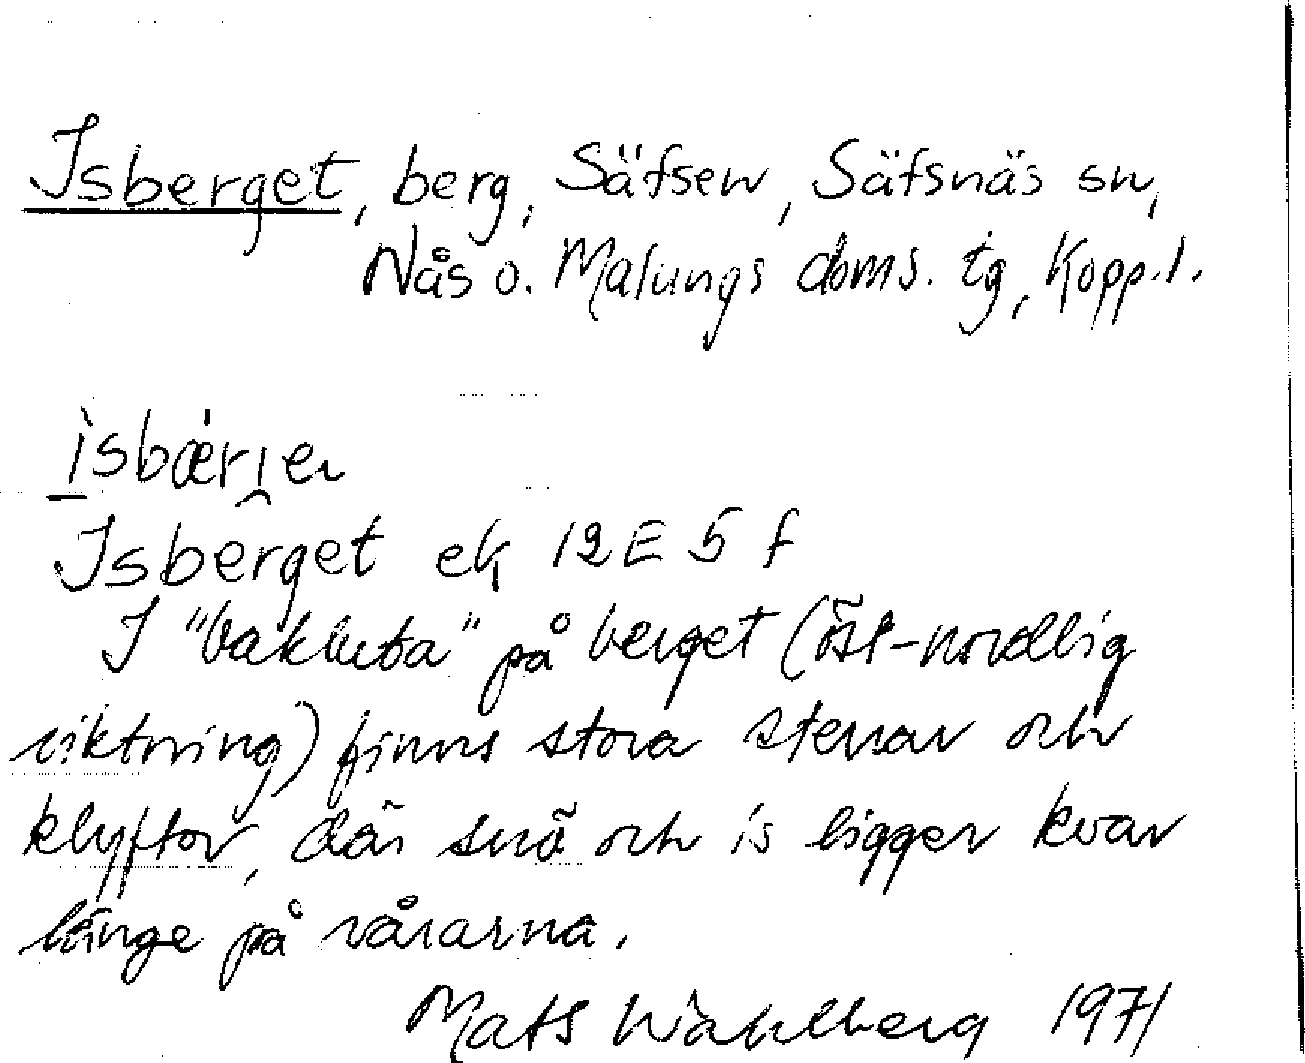 Isberget, berg, Säfsen, Säfsnäs sn,
Nås o. Malungs doms. tg, Kopp. l.
ìsbæŕi̯en
Isberget ek 12E 5 f
I "bakluta" på berget (öst-nordlig
riktning) finns stora stenar och
klyftor, där snö och is ligger kvar
länge på vårarna.
Mats Wahlberg 1971